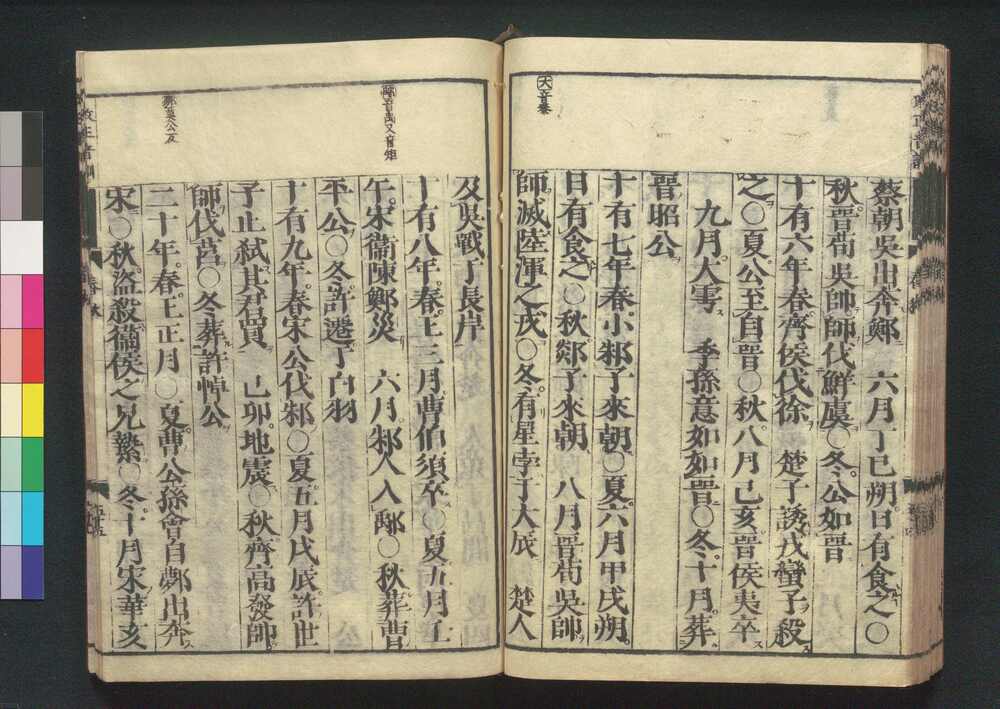 大音泰
蔡朝吳出奔鄭　六月丁巳朔日有食之〇
秋晉荀吳帥師伐鮮虞〇冬公如晉
十有六年春齊侯伐徐　楚子誘戎蠻子殺
之〇夏公至自晉〇秋八月己亥晉侯夷卒
九月大雩　季孫意如如晉〇冬十月葬
晉昭公
十有七年春小邾子來朝〇夏六月甲戌朔
日有食之〇秋郯子來朝　八月晉荀吳帥
師滅陸渾之戎〇冬有星孛于大辰　楚人
及吳戰于長岸
十有八年春王三月曹伯須卒〇夏五月壬
午宋衞陳鄭災　六月邾人入鄅〇秋葬曹
平公〇冬許遷于白羽
十有九年春宋公伐邾〇夏五月戊辰許世
子止弒其君買　己卯地震〇秋齊高發帥
師伐莒〇冬葬許悼公
二十年春王正月〇夏曹公孫會自鄸出奔
宋〇秋盜殺衞侯之兄縶〇冬十月宋華亥
鄅音禹又音矩